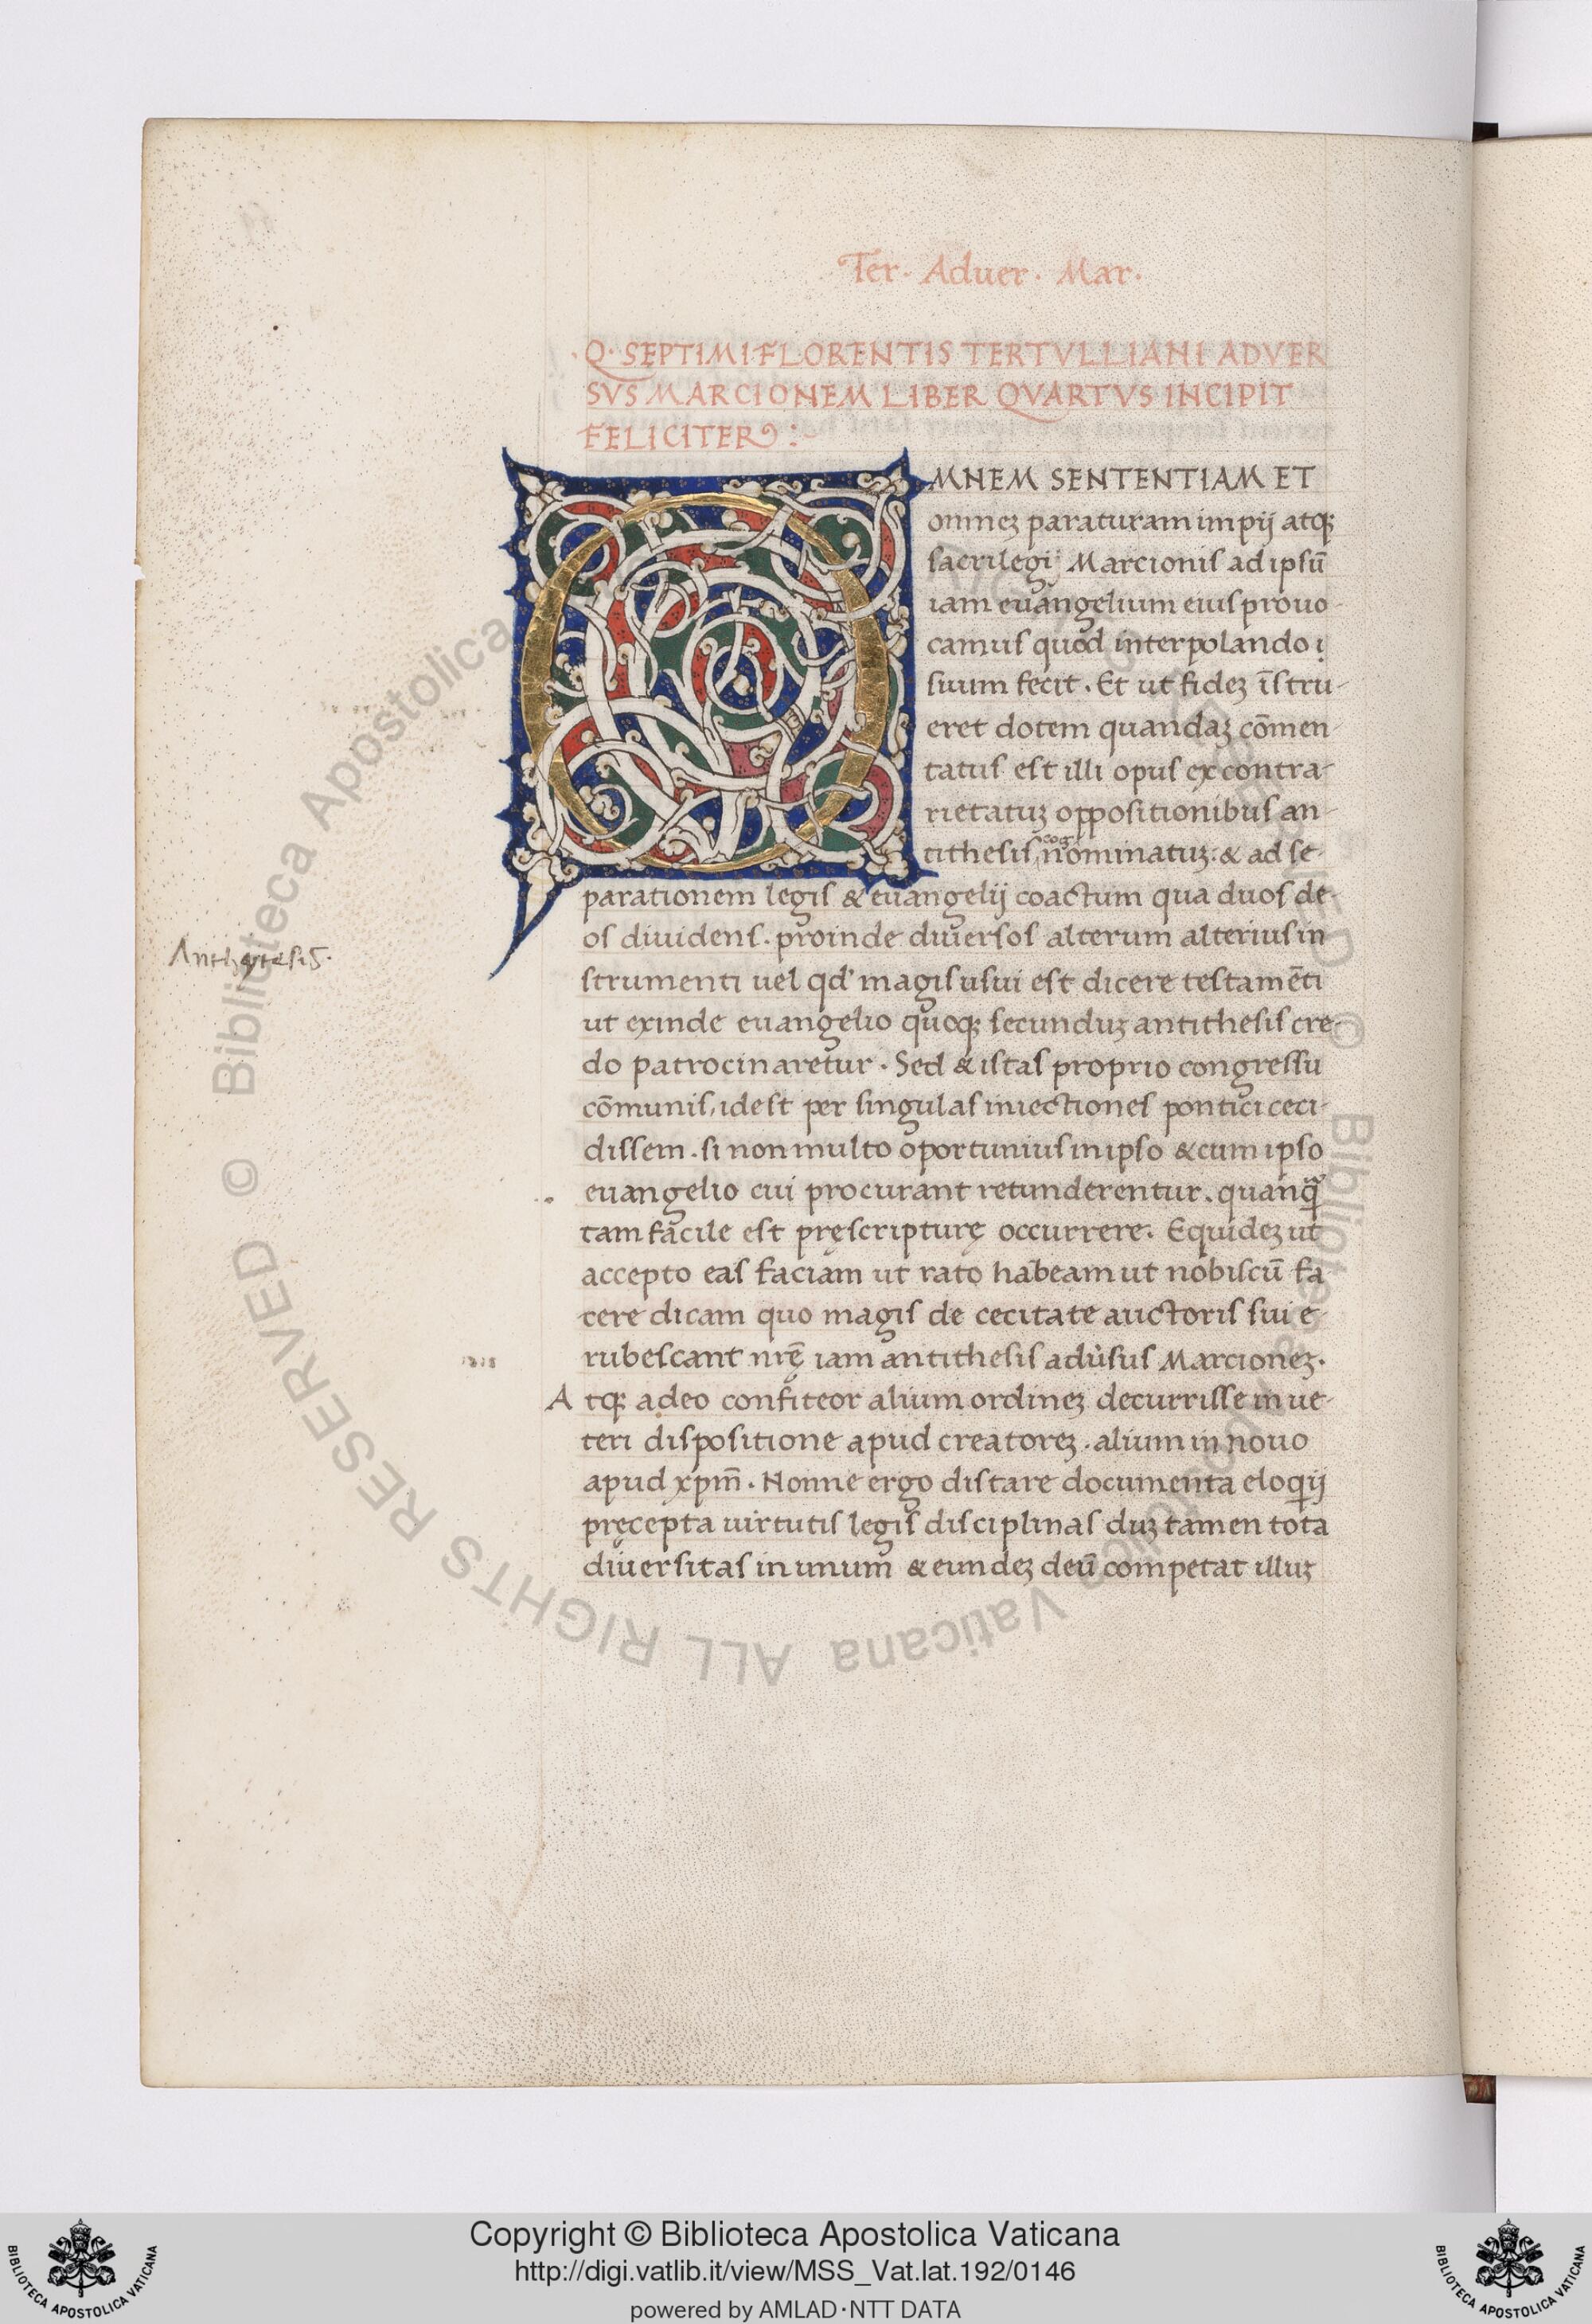 Ter. Aduer. Mar.
Q. SEPTIMI FLORENTIS TERTVLLIANI ADVER
SVS MARCIONEM LIBER QVARTVS INCIPIT
FELICITER :
OMNEM SENTENTIAM ET
omneꝫ paraturam impij atqꝫ
sacrilegi Marcionis ad ipsū
iam euangelium eius prouo-
camus quod interpolando ı
suum fecit. Et ut fideꝫ īstru-
eret dotem quandaꝫ cōmen-
tatus est illi opus ex contra-
rietatuꝫ oppositionibus an-
tithesis cog nominatuꝫ: & ad se-
parationem legis & euangelij coactum qua duos de-
os diuidens. proinde diuersos alterum alterius in
strumenti uel qd' magis usui est dicere testamēti
ut exinde euangelio quoqꝫ secunduꝫ antithesis cre-
do patrocinaretur. Sed & istas proprio congressu
cōmunis, idest per singulas iniectiones pontici ceci-
dissem. si non multo oportunius in ipso & cum ipso
euangelio cui procurant retunderentur. quanq̄
tam facile est pręscripturę occurrere. Equideꝫ ut
accepto eas faciam ut rato habeam ut nobiscū fa
cere dicam quo magis de cecitate auctoris sui e-
rubescant nrę̄ iam antithesis adu̇sus Marcioneꝫ.
Atqꝫ adeo confiteor alium ordineꝫ decurrisse in ue-
teri dispositione apud creatoreꝫ. alium in nouo
apud xpm̄. Nonne ergo distare documenta eloqij
pręcepta uirtutis legis disciplinas duꝫ tamen tota
diuersitas in unum & eundeꝫ deū competat illuꝫ
© Biblioteca Apostolica Vaticana ALL RIGHTS RESERVED
Copyright © Biblioteca Apostolica Vaticana
http://digi.vatlib.it/view/MSS_Vat.lat.192/0146
powered by AMLAD·NTT DATA
BIBLIOTECA APOSTOLICA VATICANA
BIBLIOTECA APOSTOLICA VATICANA